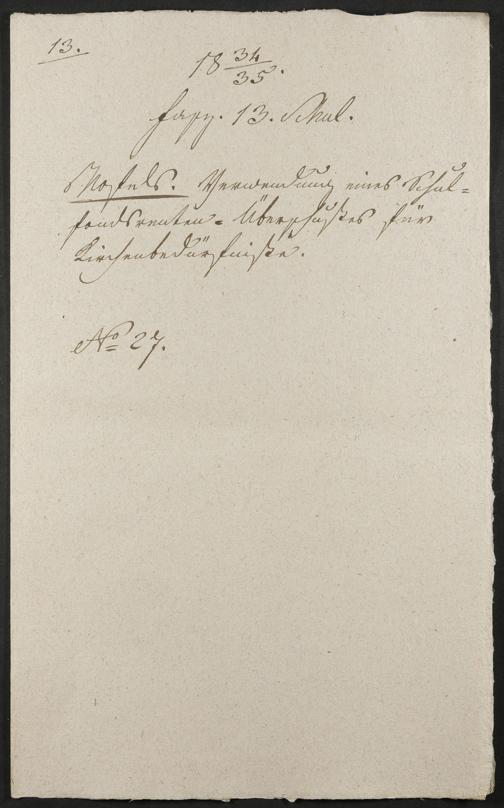 13.
18 34/35.
Fasz. 13. Schul.
Mosfels. Verwendung eines Schul=
fondsrenten=Überschußes für
Kirchenbedürfniße.
No 27.